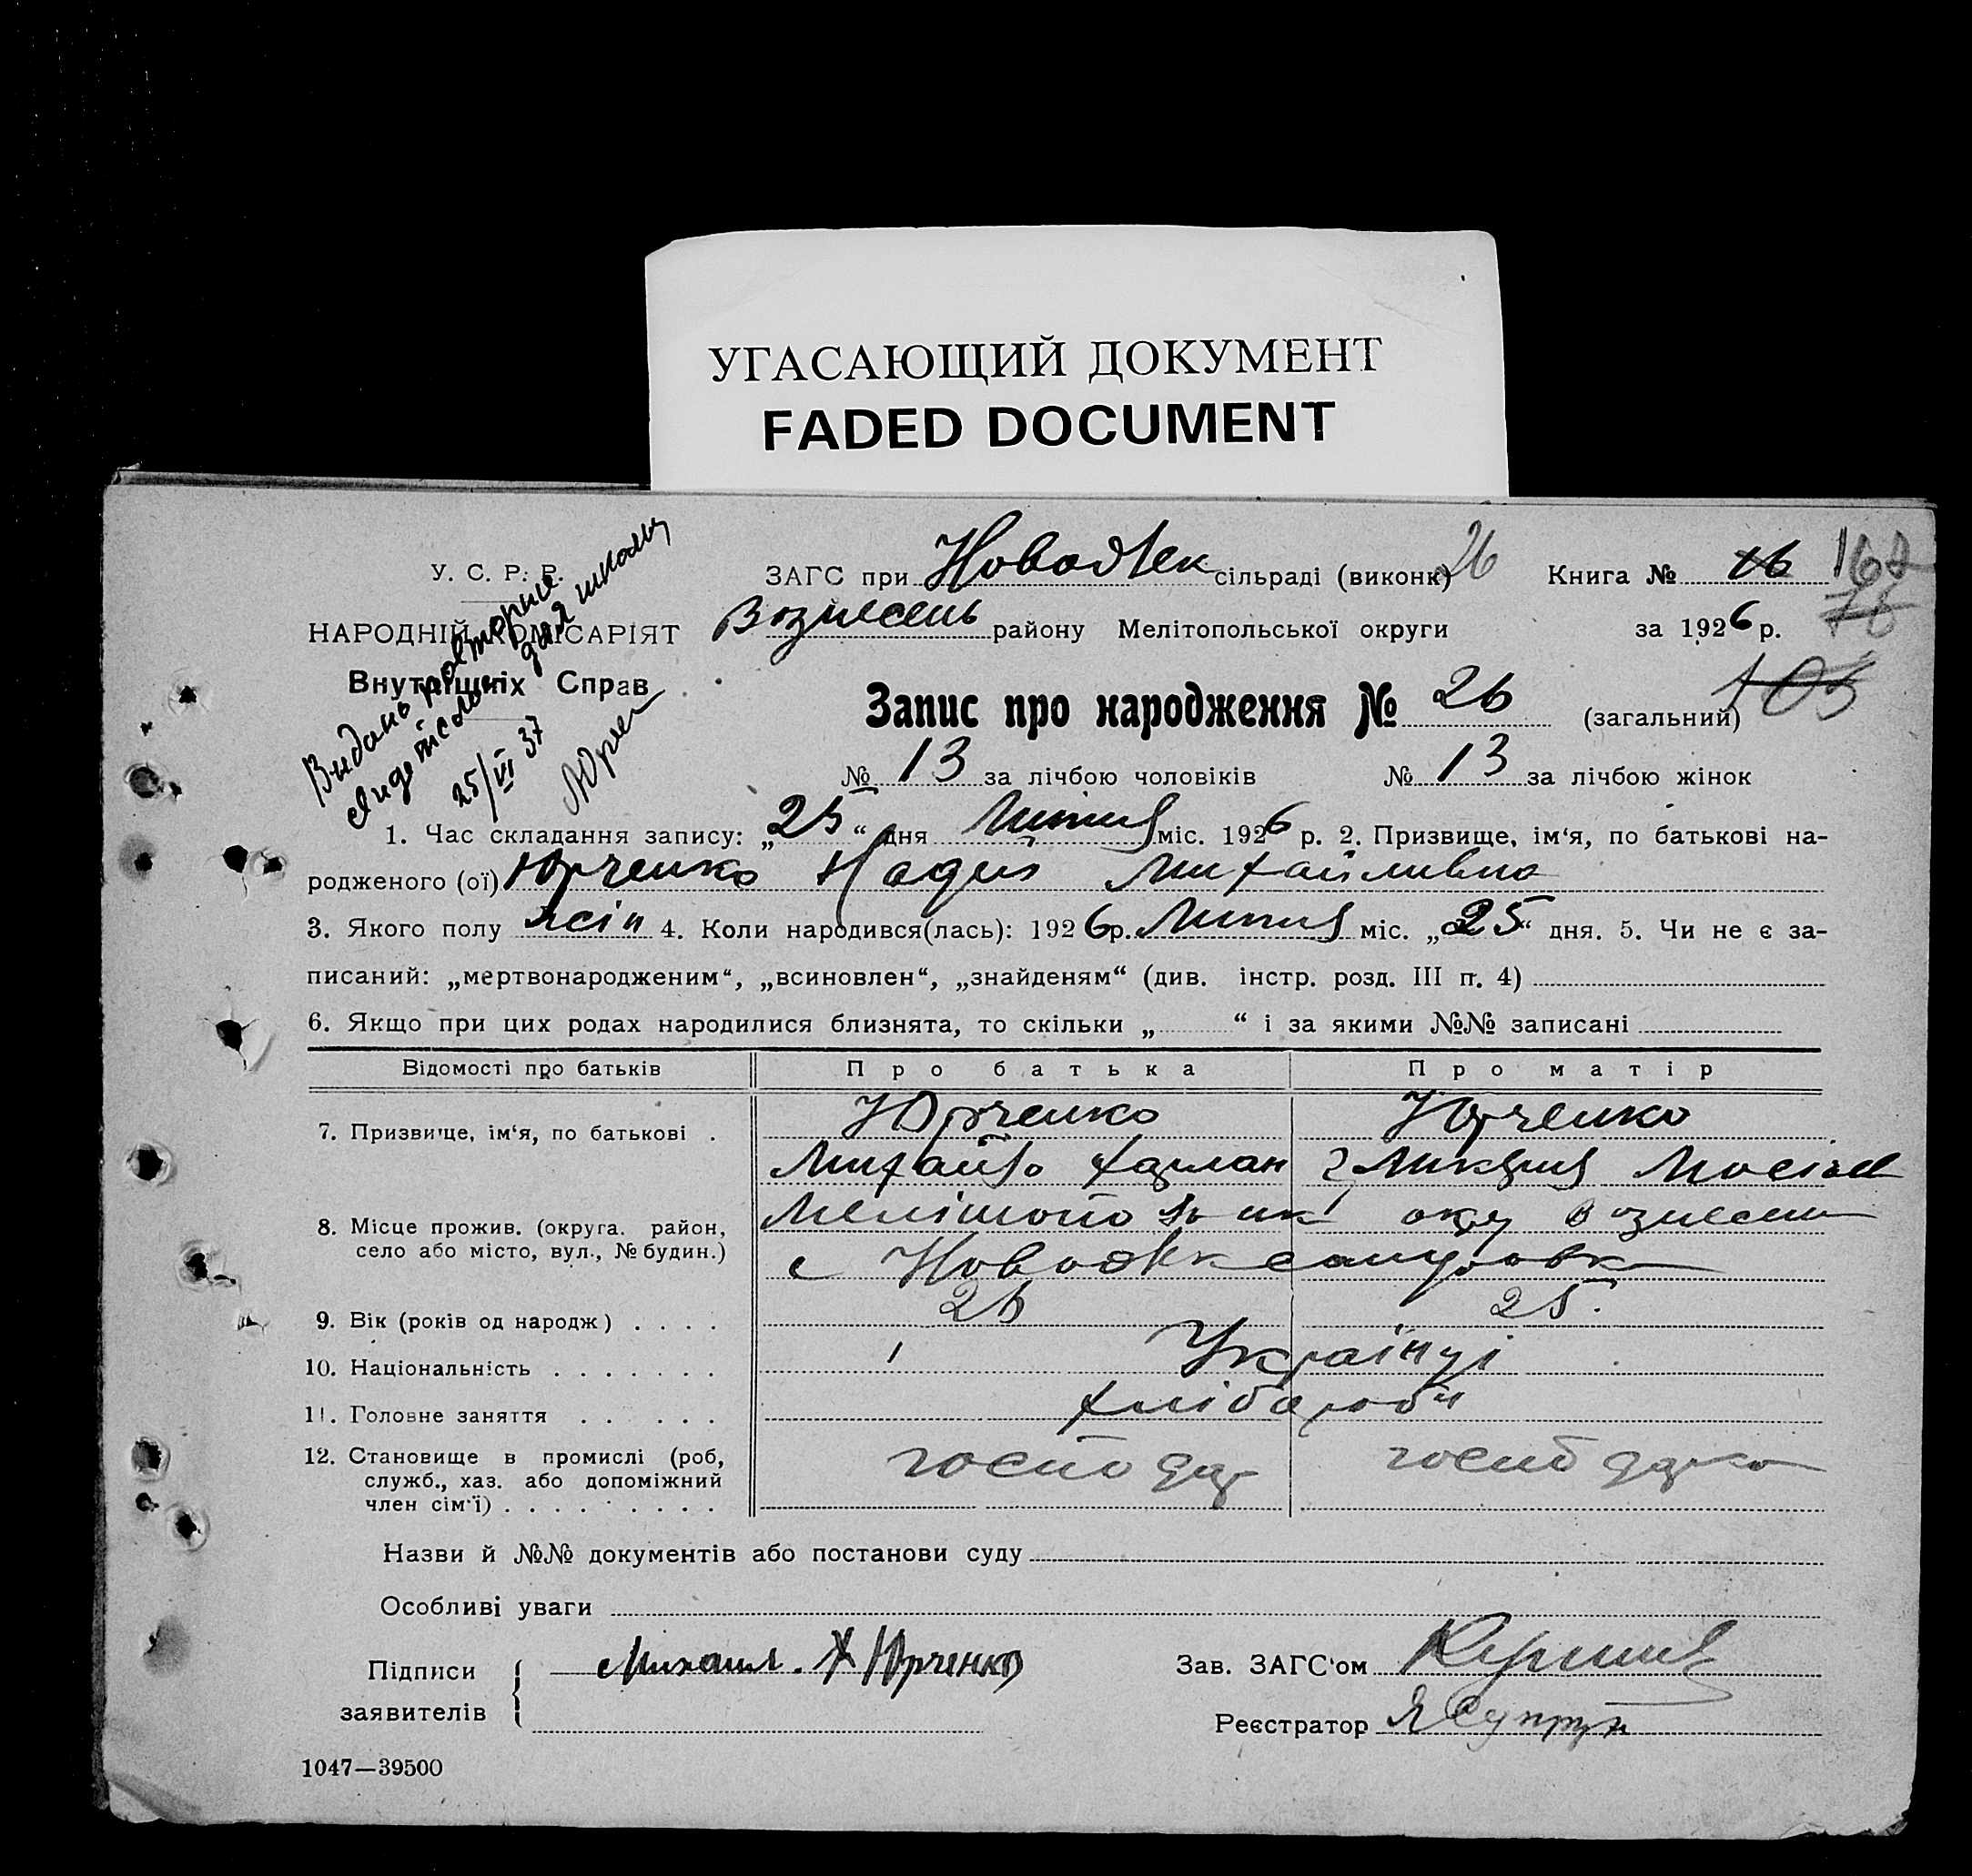 УГАСАЮЩИЙ ДОКУМЕНТ
FADED DOCUMENT
У. С. Р. Р.
НАРОДНІЙ КОМІСАРІЯТ
Внутрішніх Справ
Видано повторне
для школы
25/VI 37
ЗАГС при Новоолек сільраді (виконк) 26 Книга № 16
Вознесень району Мелітопольської округи за 1926 р.
103
Запис про народження № 26 (загальний)
№ 13 за лічбою чоловіків № 13 за лічбою жінок
1. Час складання запису: „25“ дня Липня міс. 1926 р. 2. Призвище, ім‘я, по батькові на-
родженого (ої) Юрченко Надія Михайливна
3. Якого полу жін 4. Коли народився(лась): 1926р. Липня міс. „25“ дня. 5. Чи не є за-
писаний: „мертвонародженим“, „всиновлен“, „знайденям“ (див. інстр. розд. III п. 4)
6. Якщо при цих родах народилися близнята, то скільки „ “ і за якими №№ записані
Відомості про батьків Про батька Про матір
7. Призвище, ім‘я, по батькові . Юрченко Юрченко
Михайло Мосіев
8. Місце прожив. (округа. район,
село або місто, вул., № будин.)
окр Вознесен
с Новоолександровк
9. Вік (років од народж) . . . . 26 25.
10. Національність . . . . . . . Українці
11. Головне заняття . . . . . . Хлібороби
12. Становище в промислі (роб,
служб., хаз. або допоміжний
член сім‘ї) . . . . . . . . .
господар господарка
Назви й №№ документів або постанови суду
Особливі уваги
Підписи
заявителів
Михаил. Х Юрченко
Зав. ЗАГС‘ом
Реєстратор Я Супрун
1047—39500